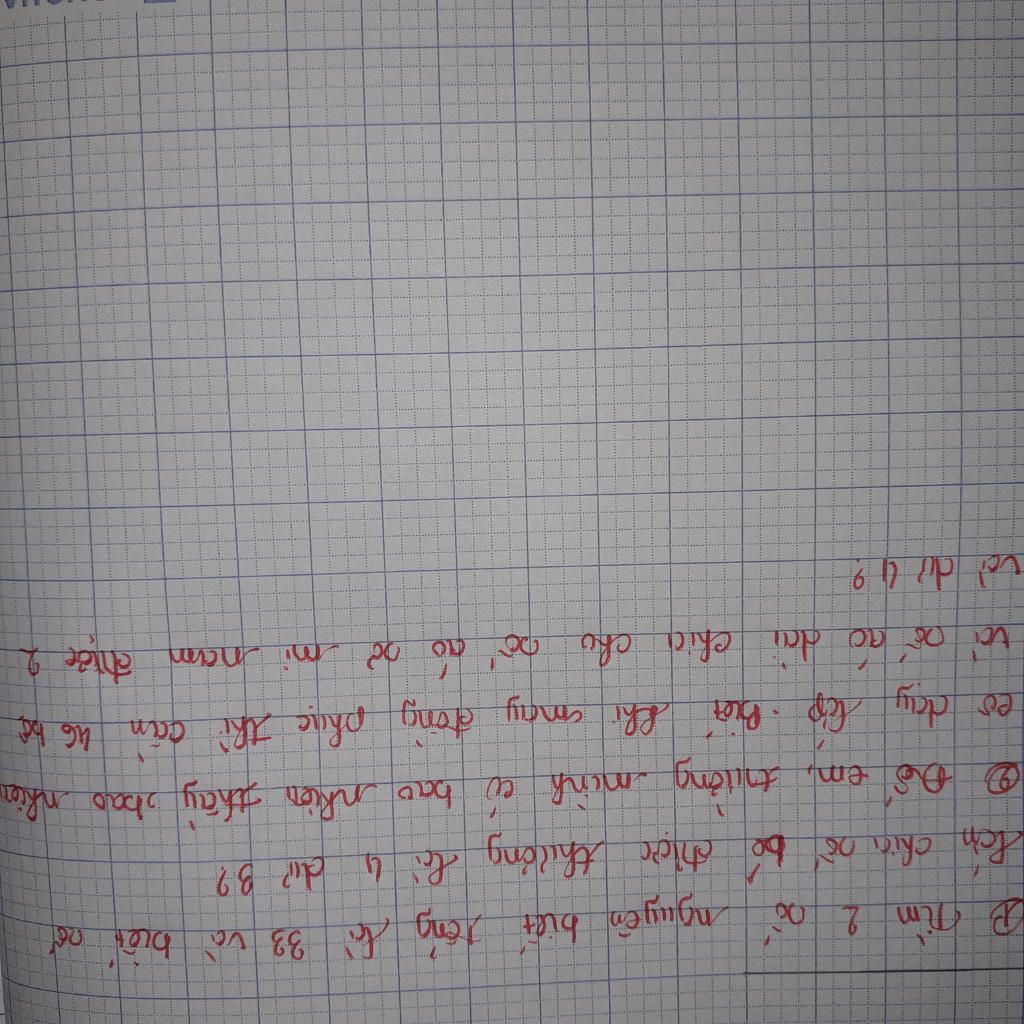 ① Tìm 2 số nguyên biết tổng là 33 và biết số
lớn chia số bé được thương là 4 dư 3?
② Đố em, trường mình có bao nhiên thầy, bao nhiên
cô dạy lớp. Biết khi may đồng phục thì cần 46 bộ
và số áo dài chia cho số áo sơ mi nam được 2
và dư 4?